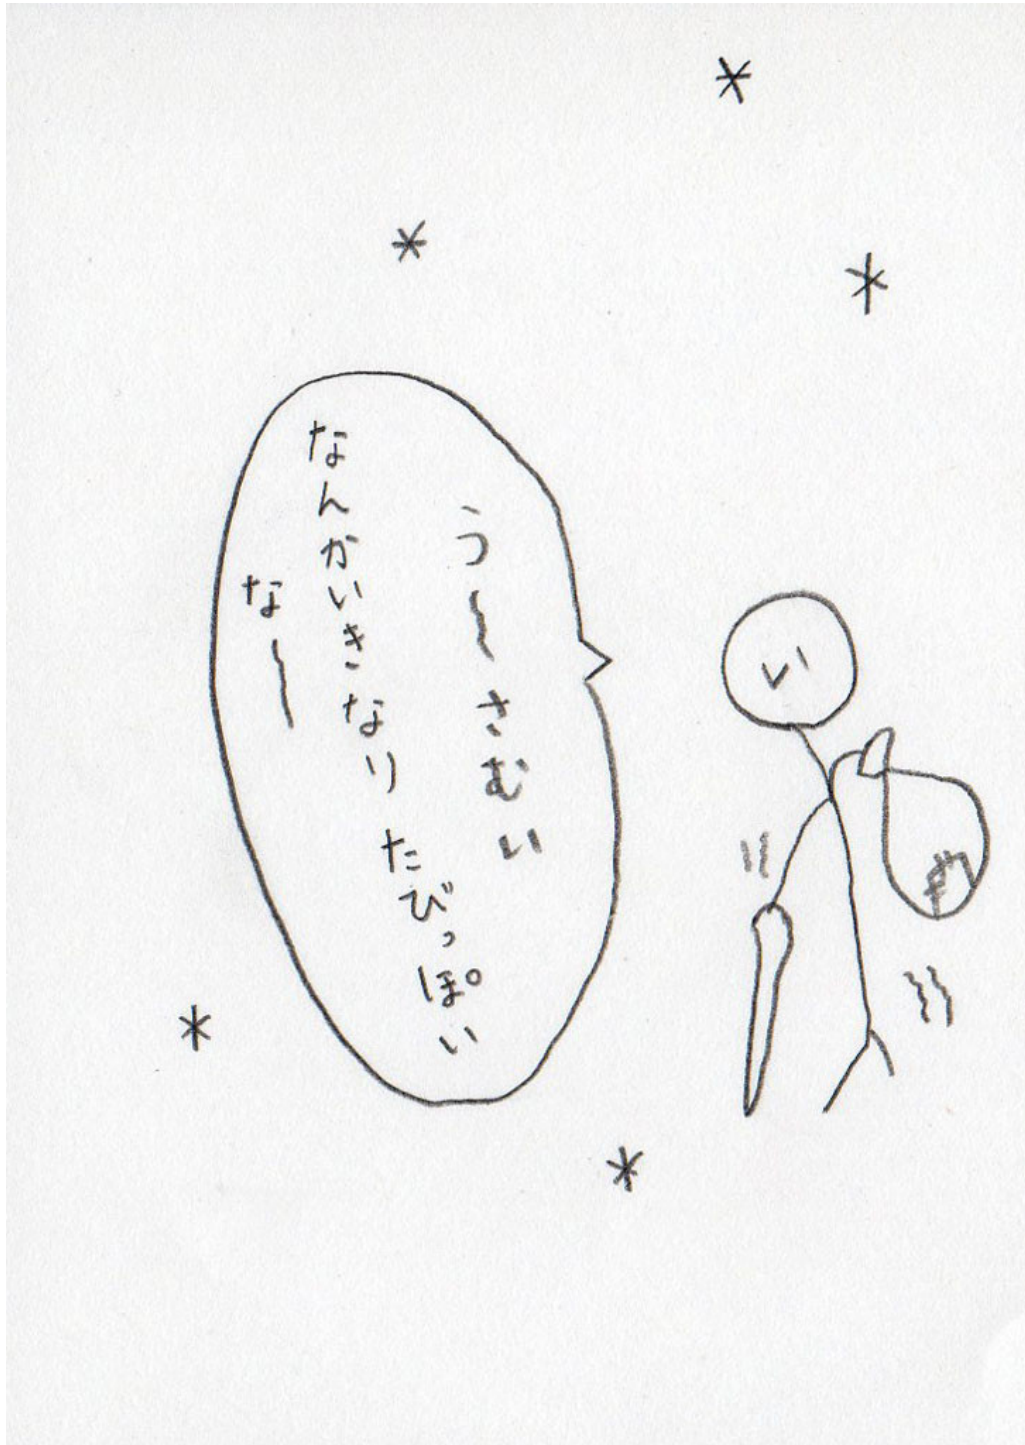 う〜さむい
なんかいきなりたびっぽい
な〜
い